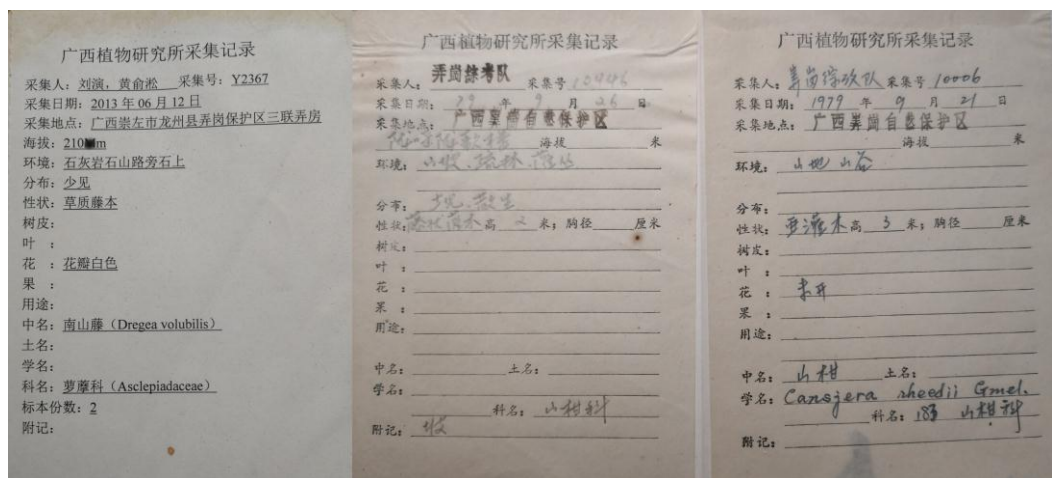 广西植物研究所采集记录
采集人：刘演，黄俞淞 采集号：Y2367
采集日期：2013 年 06 月 12 日
采集地点：广西崇左市龙州县弄岗保护区三联弄房
海拔：210 m
环境：石灰岩石山路旁石上
分布：少见
性状：草质藤本
树皮：
叶 ：
花 ：花瓣白色
果 ：
用途：
中名：南山藤（Dregea volubilis）
土名：
学名：
科名：萝藦科（Asclepiadaceae）
标本份数：2
附记：
广西植物研究所采集记录
采集人：弄岗综考队 采集号
采集日期：79 年 9 月 26 日
采集地点：广西弄岗自然保护区
海拔 米
环境：山坡、疏林
分布：散生
性状：藤状灌木 高 2 米；胸径 厘米
树皮：
叶 ：
花 ：
果 ：
用途：
中名： 土名：
学名：
科名：山柑科
附记：
广西植物研究所采集记录
采集人：弄岗综考队 采集号 10006
采集日期：1979 年 9 月 21 日
采集地点：广西弄岗自然保护区
海拔 米
环境：山地 山谷
分布：
性状：亚灌木 高 3 米；胸径 厘米
树皮：
叶 ：
花 ：未开
果 ：
用途：
中名：山柑 土名：
学名：Cansjera rheedii Gmel.
科名：183 山柑科
附记：